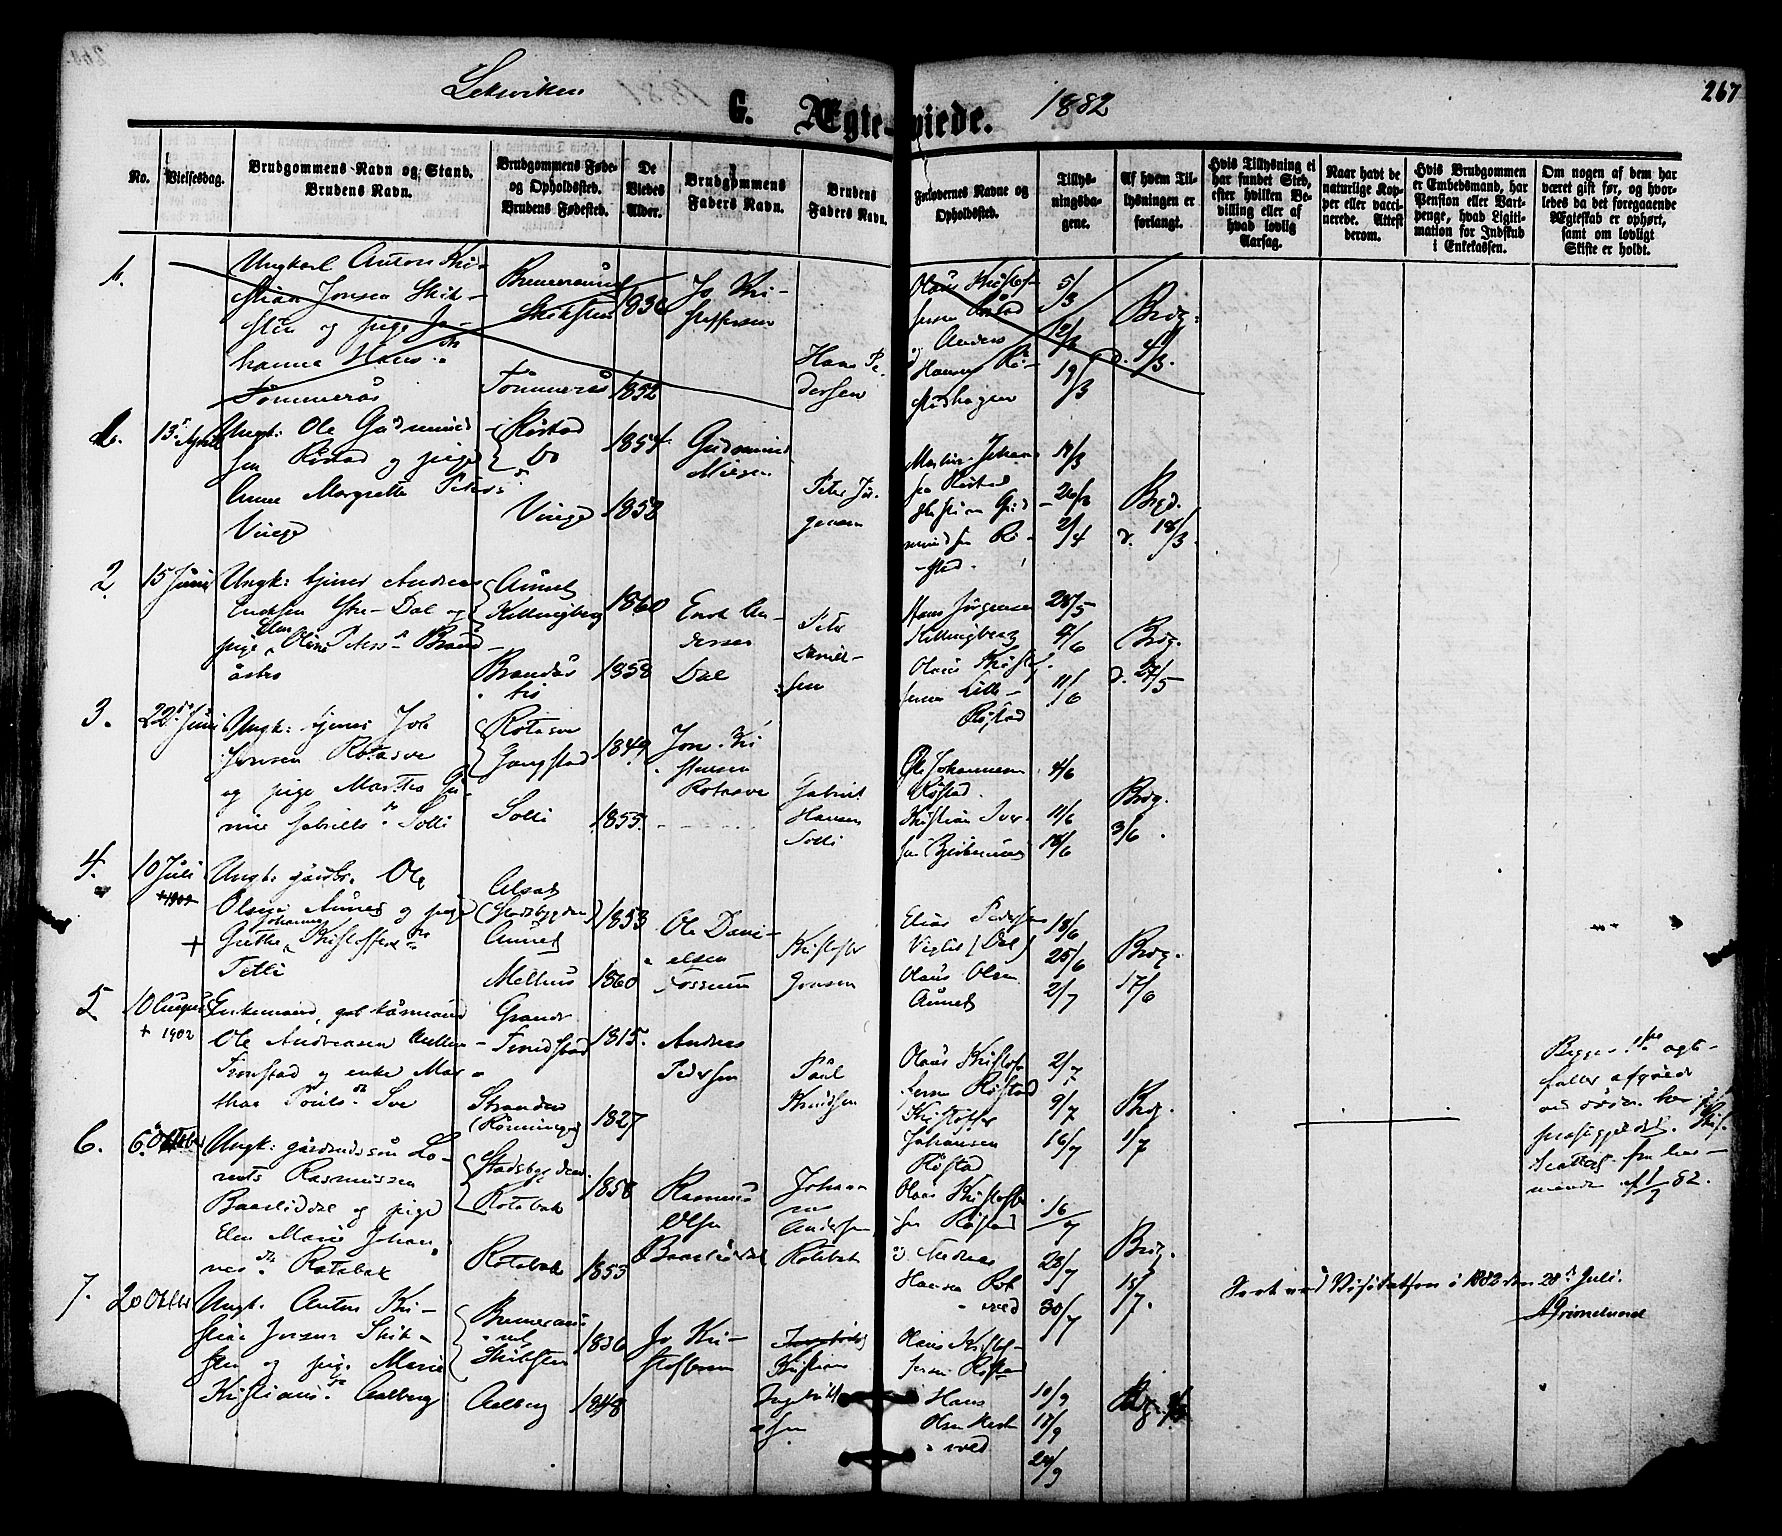 267
Leksviken
G. Ægte-viede. 1882
No.
Vielsesdag.
Brudgommens Navn og Stand.
Brudens Navn.
Brudgommens Føde-
og Opholdssted.
Brudens Fødested.
De
Viedes
Alder.
Brudgommens
Faders Navn.
Brudens
Faders Navn.
Forlovernes Navne og
Opholdssted.
Tillys-
ningsda-
gene.
Af hvem Til-
lysningen er
forlangt.
Hvis Tillysning ei
har fundet Sted,
efter hvilken Be-
villing eller af
hvad lovlig
Aarsag.
Naar havt de
naturlige Kop-
per eller vacci-
nerede. Attest
derom.
Hvis Brudgommen
er Embedsmand, har
Pension eller Vart-
penge, hvad Ligiti-
mation for Indskub
i Enkekassen.
Om nogen af dem har
været gift før, og hvor-
ledes da det foregaaende
Ægteskab er ophørt,
samt om lovligt
Skifte er holdt.
1.
Ungkarl Anton Kri-
stian Jonsen Skik-
stin og pige Jo-
hanna Hans dr
Tømmerås
Skikstin
Tømmerås
1836
1852
Jo Kri-
stoffersen
Hans Pe-
dersen
Olaus Kristof-
fersen Røstad
Anders
Hansen
5/3
12/3
19/3
Brdg.
d. 4/3.
1.
13 April
Ungk: Ole Gudmund-
sen Røstad og pige
Anne Margrette Peters dr
Vinge
Røstad
do
Vinge
1854
1858
Gudmund
Nielsen
Peter Jør-
gensen
Martin Johan-
sen Røstad
Gud-
mundsen Rø-
stad.
19/3
26/3
2/4
Brgd.
d. 18/3.
2
15 Juni
Ungk: tjener Andreas
Endresen Dal og
pige Elen Oline Peters dr Brand-
åstrø
Aunet
Killingberg
Brandås-
1860
1858
An-
dersen
Dal
Peter
Daniel-
sen
Hans Jørgensen
Killingberg
Olaus Kristof-
fersen Lille-
Røstad
28/5
4/6
11/6
Brdg.
d. 27/5
3.
22 Juni
Ungk: tjener Job
Jonsen Rotasve
og pige Martha Gu-
rine Gabriels dr Solli
Rotasve
Gangstad
Solli
1849
1855
Jon Kri
stensen
Rotasve
Gabriel
Hansen
Solli
Ole Johannesen
Røstad.
Kristian Iver-
sen
4/6
11/6
18/6
Brdg.
3/6.
4.
10 Juli
+1902
+
Ungk: gårdbr. Ole
Olsen Aunet og pige
Johanna
Grethe Kristoffers dr
Tetli
(Stadsbygden)
Aunet
Melhus
1853
1860
Ole Dani-
elsen
Fossum
Kristoffer
Jonsen
Elias Pedersen
Viglis (Dal)
Olaus Olsen
Aunet
18/6
25/6
2/7
Brdg.
17/6
5
10 August
+ 1902
Enkemand, gal kårmand
Ole Andreasen
Tronstad og enke Mar-
tha Pouls dr Sve
Grande
Tronstad
Stranden
(Rønningen)
1815.
1827
Andreas
Pedersen
Paul
Knudsen
Olaus Kristof-
fersen Røstad
Kristoffer
Johansen
Røstad
2/7
9/7
16/7
Brdg.
1/7
Begges 1ste ægte-
fæller afgåede
ved døden
Skif-
teattest fra lens-
manden af 1/7 82.
6.
6 Oktober
Ungk: gårdmandssøn Lo-
rents Rasmussen
Baarliddal og pige
Elen Marie Johan-
nes dr Rotabak
Stadsbygden
Rotabak
Rotabak
1858
1853
Rasmus
Olsen
Baarliddal
Johan-
nes
Andersen
Rotabak
Olaus Kristoffer-
sen Røstad
Andreas
Hansen Rok
16/7
23/7
30/7
Brdg.
15/7.
Seet ved Visitatsen i 1882 den 28 Juli.
Grimelund
7.
20 Oktbr
Ungk. Anton Kri-
stian Jonsen Skik-
stin og pige Marie
Kristians dr Aalberg
Skiksten
Aalberg
1836
1848
Jo Kri-
stoffersen
Kristian
Ingebrikt-
sen
Olaus Kristof-
fersen Røstad
Hans
Olsen
10/9
17/9
24/9